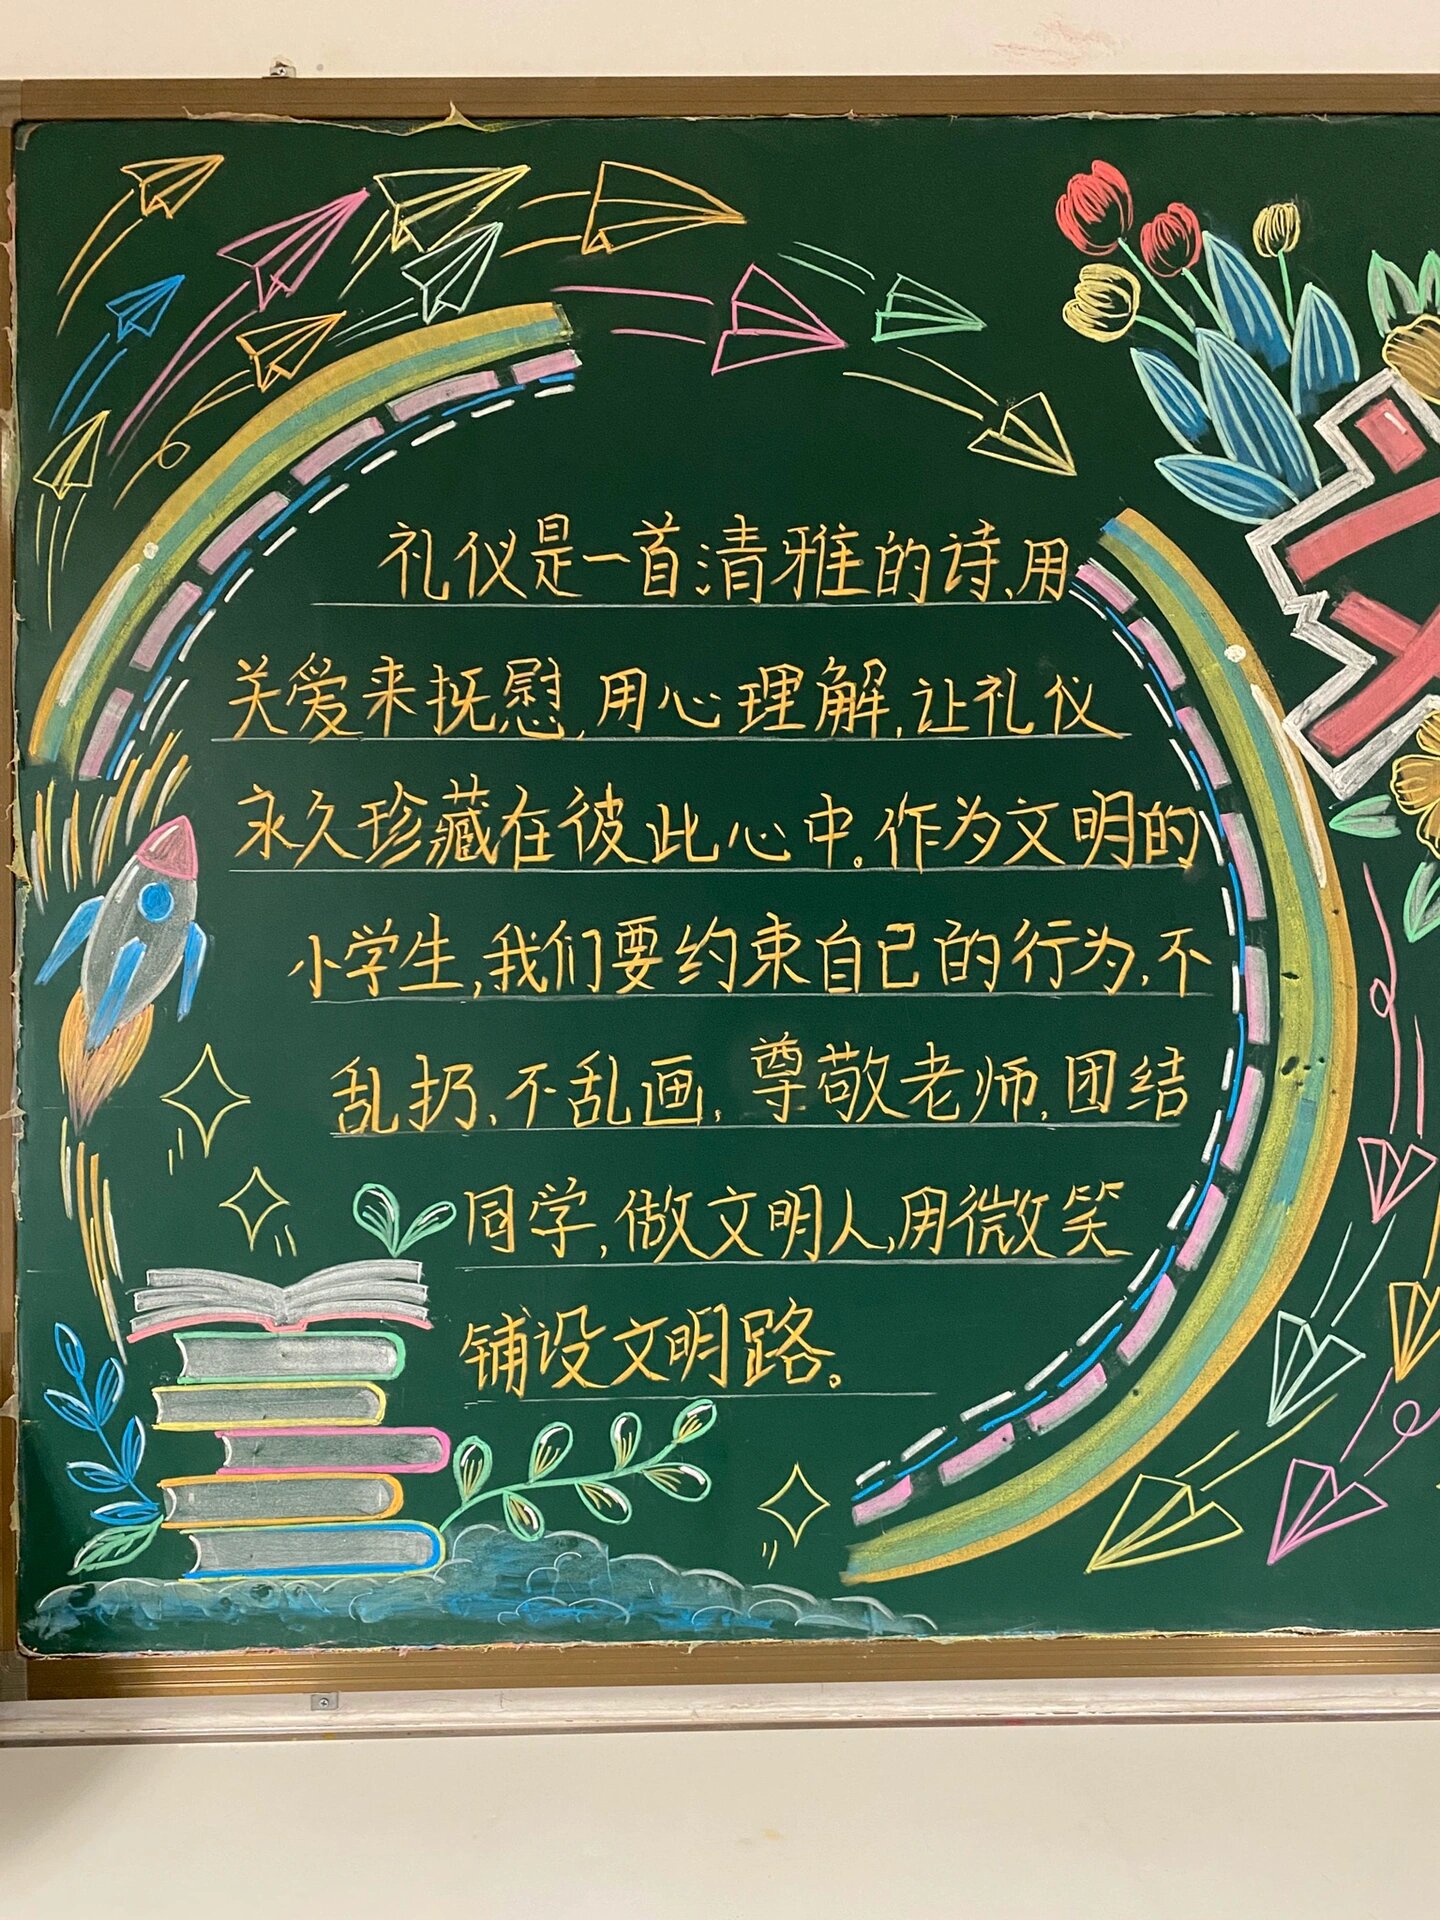 礼仪是一首清雅的诗,用
关爱来抚慰,用心理解,让礼仪
永久珍藏在彼此心中。作为文明的
小学生,我们要约束自己的行为,不
乱扔,不乱画,尊敬老师,团结
同学,做文明人,用微笑
铺设文明路。